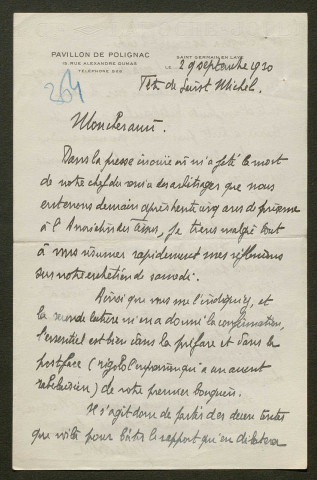 PAVILLON DE POLIGNAC
15, RUE ALEXANDRE DUMAS
TÉLÉPHONE
SAINT GERMAIN EN LAYE
LE 29 septembre 1920
264
Fête de Saint Michel.
Mon cher ami,
Dans la presse inouïe où m'a jeté la mort
de notre chef du service des arbitrages que nous
enterrons demain après trente cinq ans de présence
à l'Association des Tissus, je tiens malgré tout
à vous résumer rapidement mes réflexions
sur notre entretien de samedi.
Ainsi que vous me l'indiquiez, et
la seconde lecture m'en a donné la confirmation,
l'essentiel est bien dans la préface et dans la
postface ( qui a un accent
rabelaisien) de notre premier bouquin.
Il s'agit donc de partir des deux textes
que voilà pour bâtir le rapport qu'on